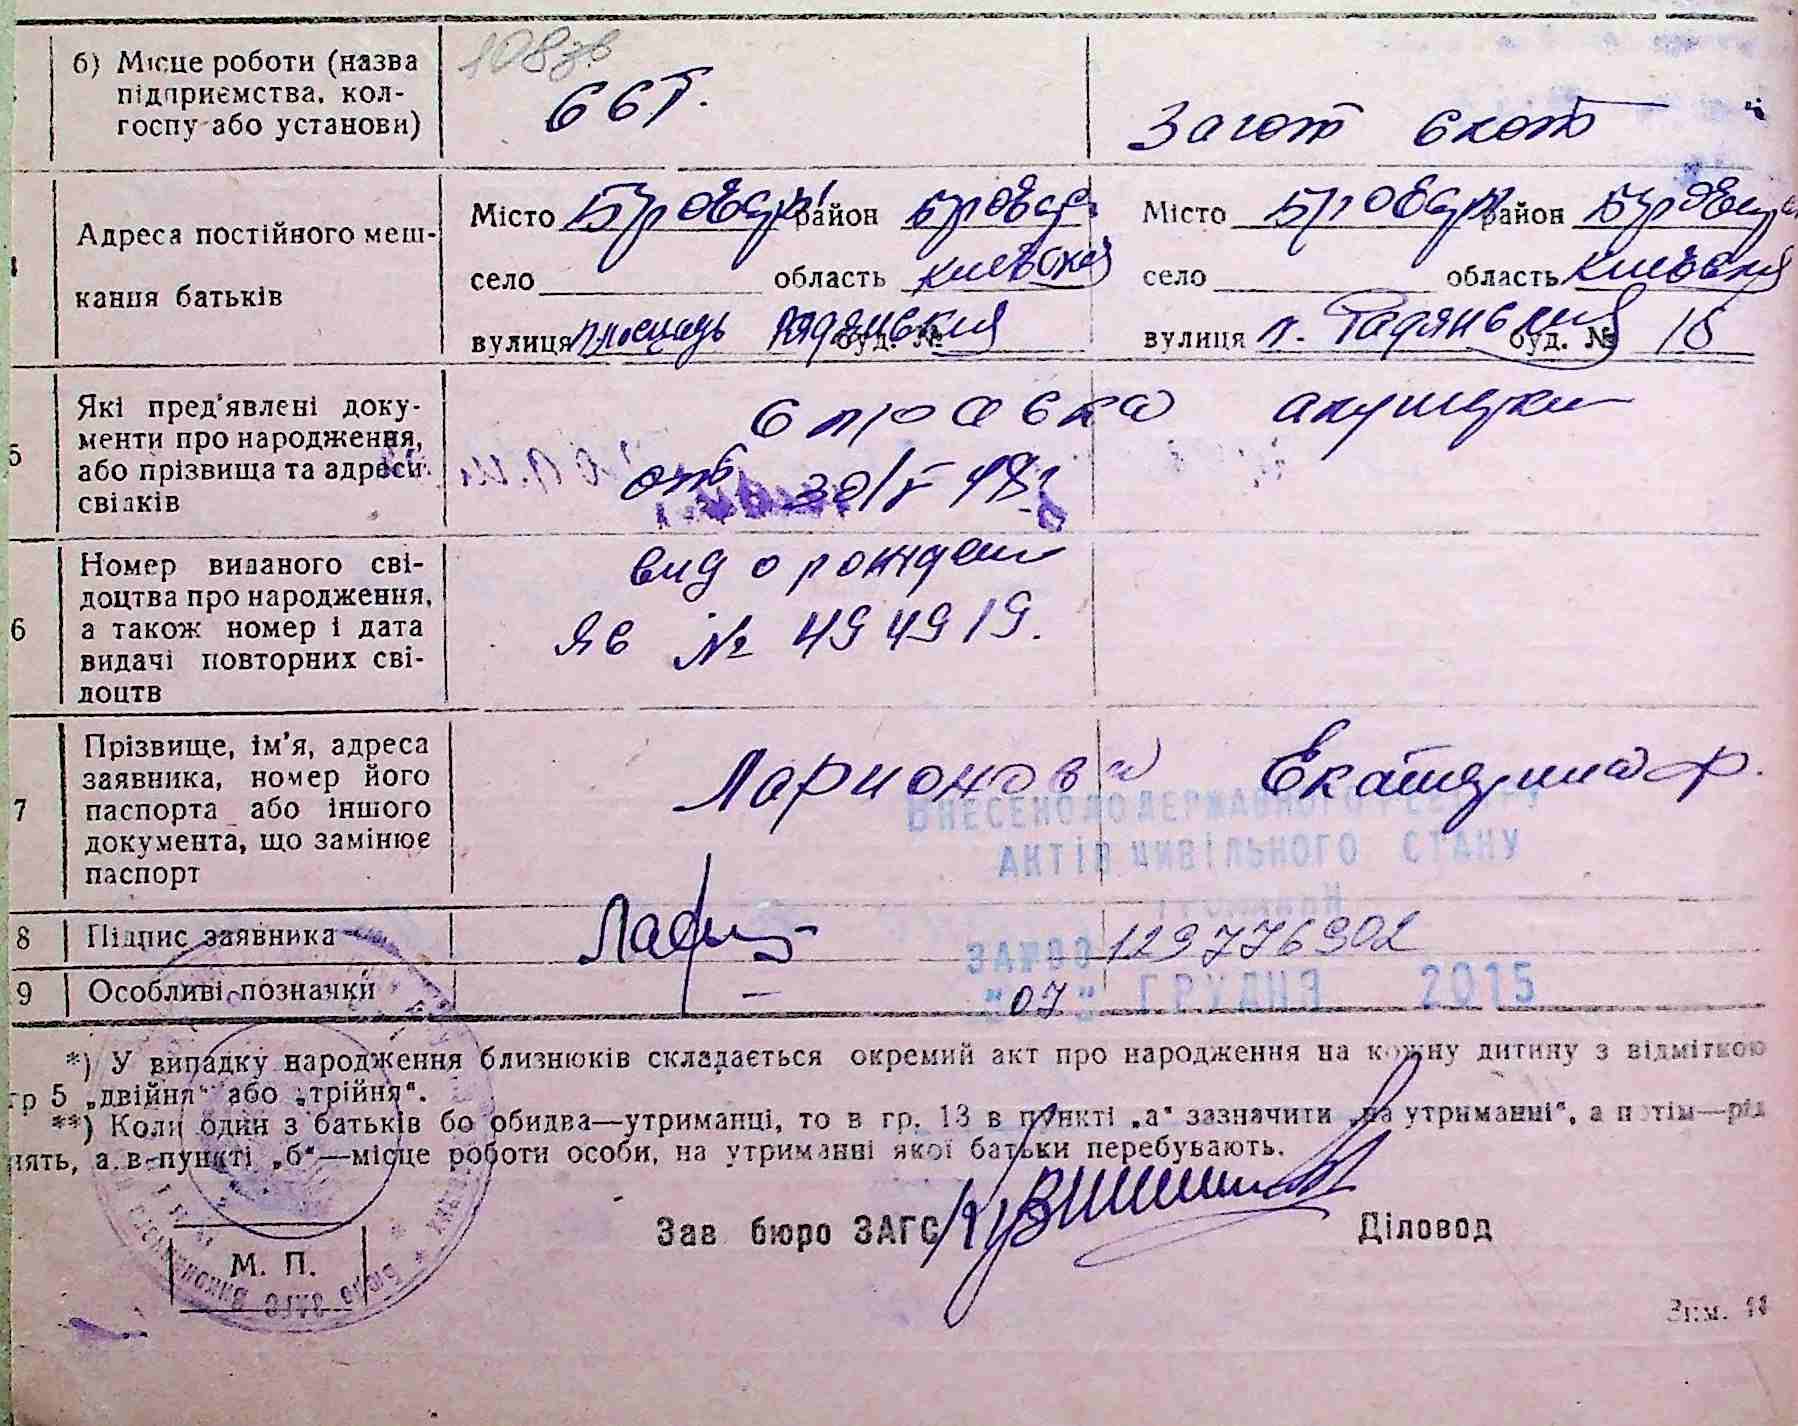 б) Місце роботи (назва
підприємства, кол-
госпу або установи)
66Т.
Загот скот
Адреса постійного меш-
кання батьків
Місто Бровары район Бровар
село область Киевская
вулиця площадь Радянская буд. №
Місто Бровары район Бровар
село область Киевская
вулиця п. Радянская буд. № 18
5 Які пред'явлені доку-
менти про народження,
або прізвища та адреси
свідків
справка акушерки
от 30/V
6 Номер виданого сві-
доцтва про народження,
а також номер і дата
видачі повторних сві-
доцтв
вид о рожден
ЯБ № 494919.
7 Прізвище, ім'я, адреса
заявника, номер його
паспорта або іншого
документа, що замінює
паспорт
Ларионова Екатерина Ф.
Внесено до Державного реєстру
актів цивільного стану
громадян
8 Підпис заявника
за №00129776902
9 Особливі позначки —
"07" ГРУДНЯ 2015
*) У випадку народження близнюків складається окремий акт про народження на кожну дитину з відміткою
гр 5 „двійня" або „трійня".
**) Коли один з батьків бо обидва—утриманці, то в гр. 13 в пункті „а" зазначити „на утриманні", а потім—рід
нять, а в пункті „б"—місце роботи особи, на утриманні якої батьки перебувають.
Зав бюро ЗАГС
Діловод
М. П.